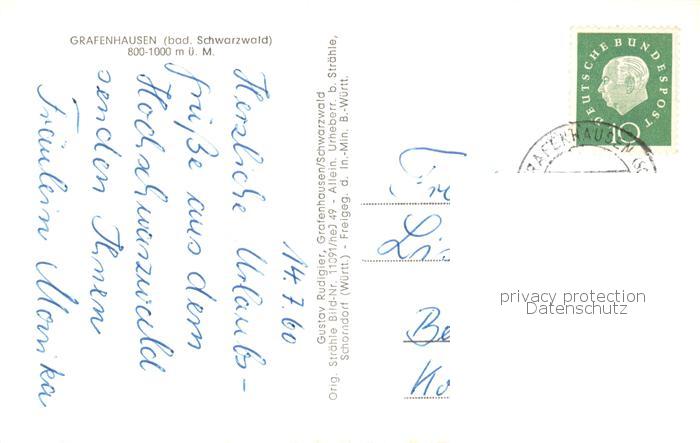 GRAFENHAUSEN (bad. Schwarzwald)
800-1000 m ü. M.
14.7.60
Herzliche Urlaubs-
grüße aus dem
Hochschwarzwald
senden Ihnen
Fräulein Monika
Gustav Rudigier, Grafenhausen/Schwarzwald
Orig. Strähle Bild-Nr. 11091/heJ 49 - Allein. Urheberr. b. Strähle,
Schorndorf (Württ.) - Freigeg. d. In.-Min. B.-Württ.
DEUTSCHE BUNDESPOST
10
GRAFENHAUSEN
Be
Ko
privacy protection
Datenschutz